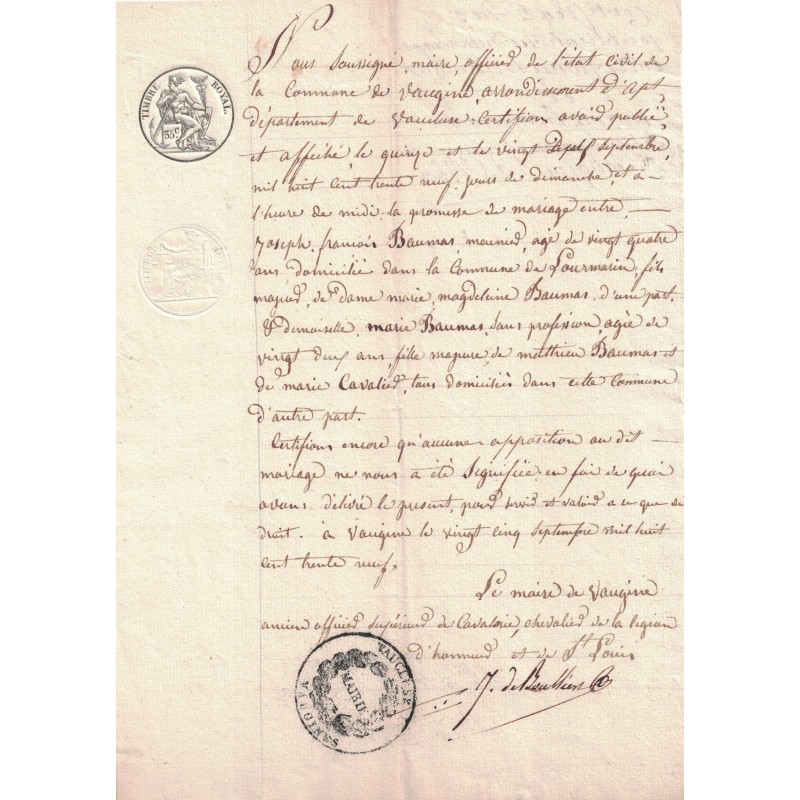 TIMBRE ROYAL.
35 c
Nous soussigné, maire, officier de l'état civil de
la Commune de Vaugine, arrondissement d'Apt,
département de Vaucluse: Certifions avoir publié
et affiché, le quinze et le vingt Deux septembre,
mil huit cent trente neuf. jours de dimanche, et a
l'heure de midi: la promesse de mariage entre,
Joseph, francois Baumas, meunier, agé de vingt quatre
ans, domicilié dans la Commune de Lourmarin, fils
majeur, de dame marie, magdeleine Baumas, d'une part.
& demoiselle, marie Baumas, sans profession, agée de
vingt deux ans, fille majeure, de matthieu Baumas et
de marie Cavalier, tous domiciliés dans cette Commune
d'autre part.
Certifions encore qu'aucune opposition au dit
mariage ne nous a été signifiée: en foi de quoi
avons délivré le présent, pour servir et valoir a ce que de
droit. à Vaugine le vingt cinq septembre mil huit
cent trente neuf.
Le maire de Vaugine
ancien officier supérieur de Cavalerie, chevalier de la legion
d'honneur et de St Louis
J. de
MAIRIE
VAUCLUSE